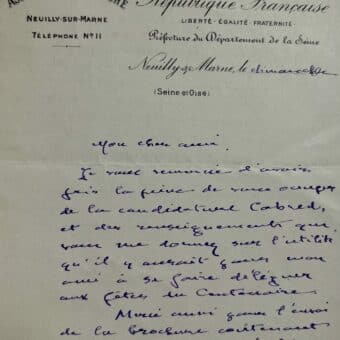 République Française
LIBERTÉ - ÉGALITÉ - FRATERNITÉ
Préfecture du Département de la Seine
NEUILLY-SUR-MARNE
TÉLÉPHONE Nº 11
Neuilly s/ Marne, le dimanche
(Seine et Oise)
Mon cher ami.
Je vous remercie d'avoir
pris la peine de vous occuper
de la candidature Cabred,
et des renseignements que
vous me donnez sur l'utilité
qu'il y aurait pour mon
ami à se faire déléguer
aux fêtes du Centenaire
Merci aussi pour l'envoi
de la brochure contenant